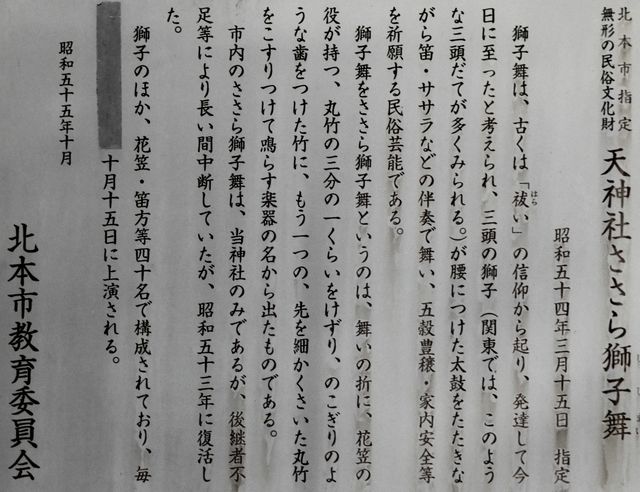 北本市指定
無形の民俗文化財
天神社ささら獅子舞
昭和五十四年三月十五日 指定
獅子舞は、古くは「祓い」の信仰から起り、発達して今
はら
日に至ったと考えられ、三頭の獅子（関東では、このよう
な三頭だてが多くみられる。）が腰につけた太鼓をたたきな
がら笛・ササラなどの伴奏で舞い、五穀豊穣・家内安全等
を祈願する民俗芸能である。
獅子舞をささら獅子舞というのは、舞いの折に、花笠の
役が持つ、丸竹の三分の一くらいをけずり、のこぎりのよ
うな歯をつけた竹に、もう一つの、先を細かくさいた丸竹
をこすりつけて鳴らす楽器の名から出たものである。
市内のささら獅子舞は、当神社のみであるが、後継者不
足等により長い間中断していたが、昭和五十三年に復活し
た。
獅子のほか、花笠・笛方等四十名で構成されており、毎
十月十五日に上演される。
昭和五十五年十月
北本市教育委員会